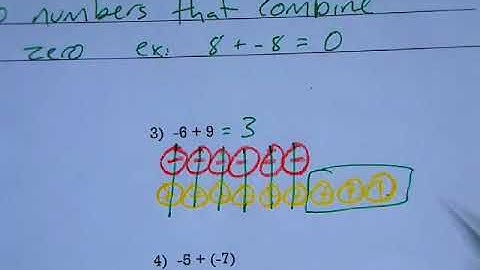 numbers that combine
zero ex: 8 + -8 = 0
3) -6 + 9 = 3
- - - - - -
+ + + + + + + + +
4) -5 + (-7)